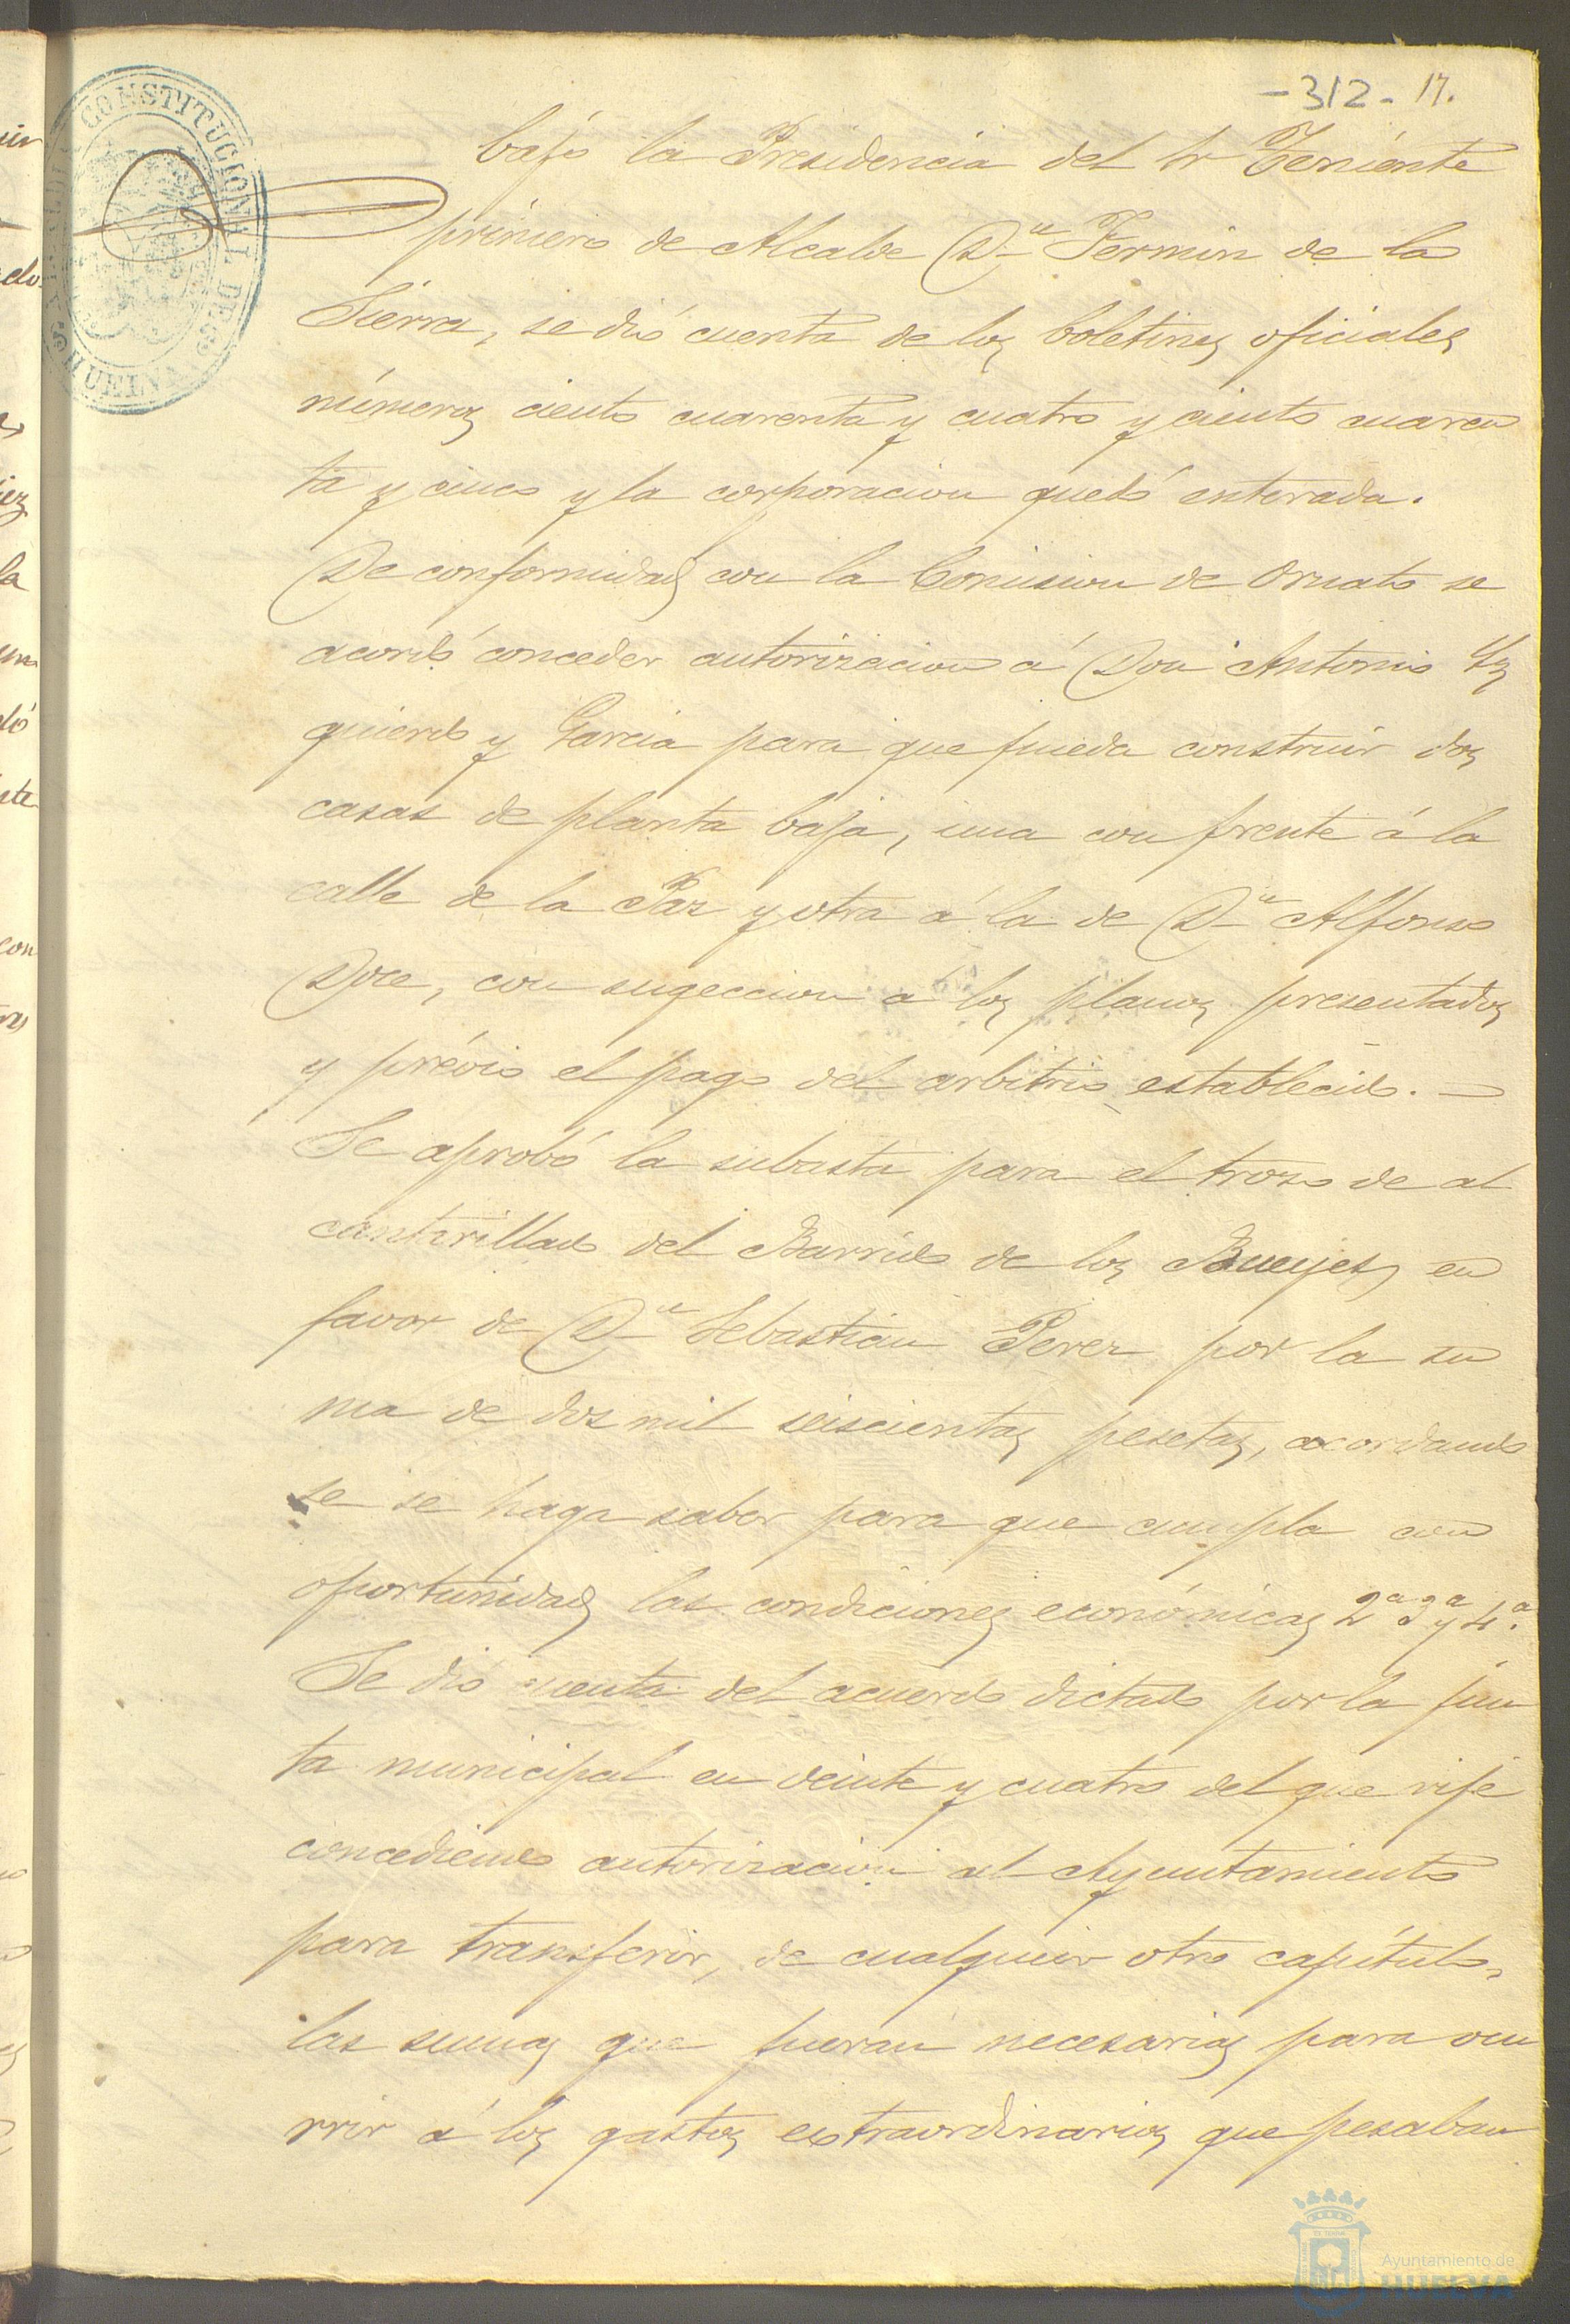 -312- 17.
bajo la Presidencia del Sr Teniente
primero de Alcalde Dn Fermin de la
Sierra, se dió cuenta de los boletines oficiales
números ciento cuarenta y cuatro y ciento cuaren
ta y cinco y la corporacion quedó enterada.
De conformidad con la Comision de Ornato se
acordó conceder autorizacion á Don Antonio Yz
quierdo y Garcia para que pueda construir dos
casas de planta baja, una con frente á la
calle de la Paz y otra á la de Dn Alfonso
Doce, con sugeccion á los planos presentados
y prévio el pago del arbitrio establecido. —
Se aprobó la subasta para el trozo de al
cantarillado del Barrio de los
favor de Dn Sebastian Perez por la su
ma de dos mil seiscientas pesetas, acordando
se se haga saber para que cumpla con
oportunidad las condiciones económicas 2ª 3ª y 4ª.
Se dió cuenta del acuerdo dictado por la jun
ta municipal en veinte y cuatro del que rije
concediendo autorizacion al Ayuntamiento
para transferir, de cualquier otro capítulo,
las sumas que fueran necesarias para ocu
rrir á los gastos extraordinarios que pesaban
CONSTITUCIONAL DE
HUELVA
Ayuntamiento de
HUELVA